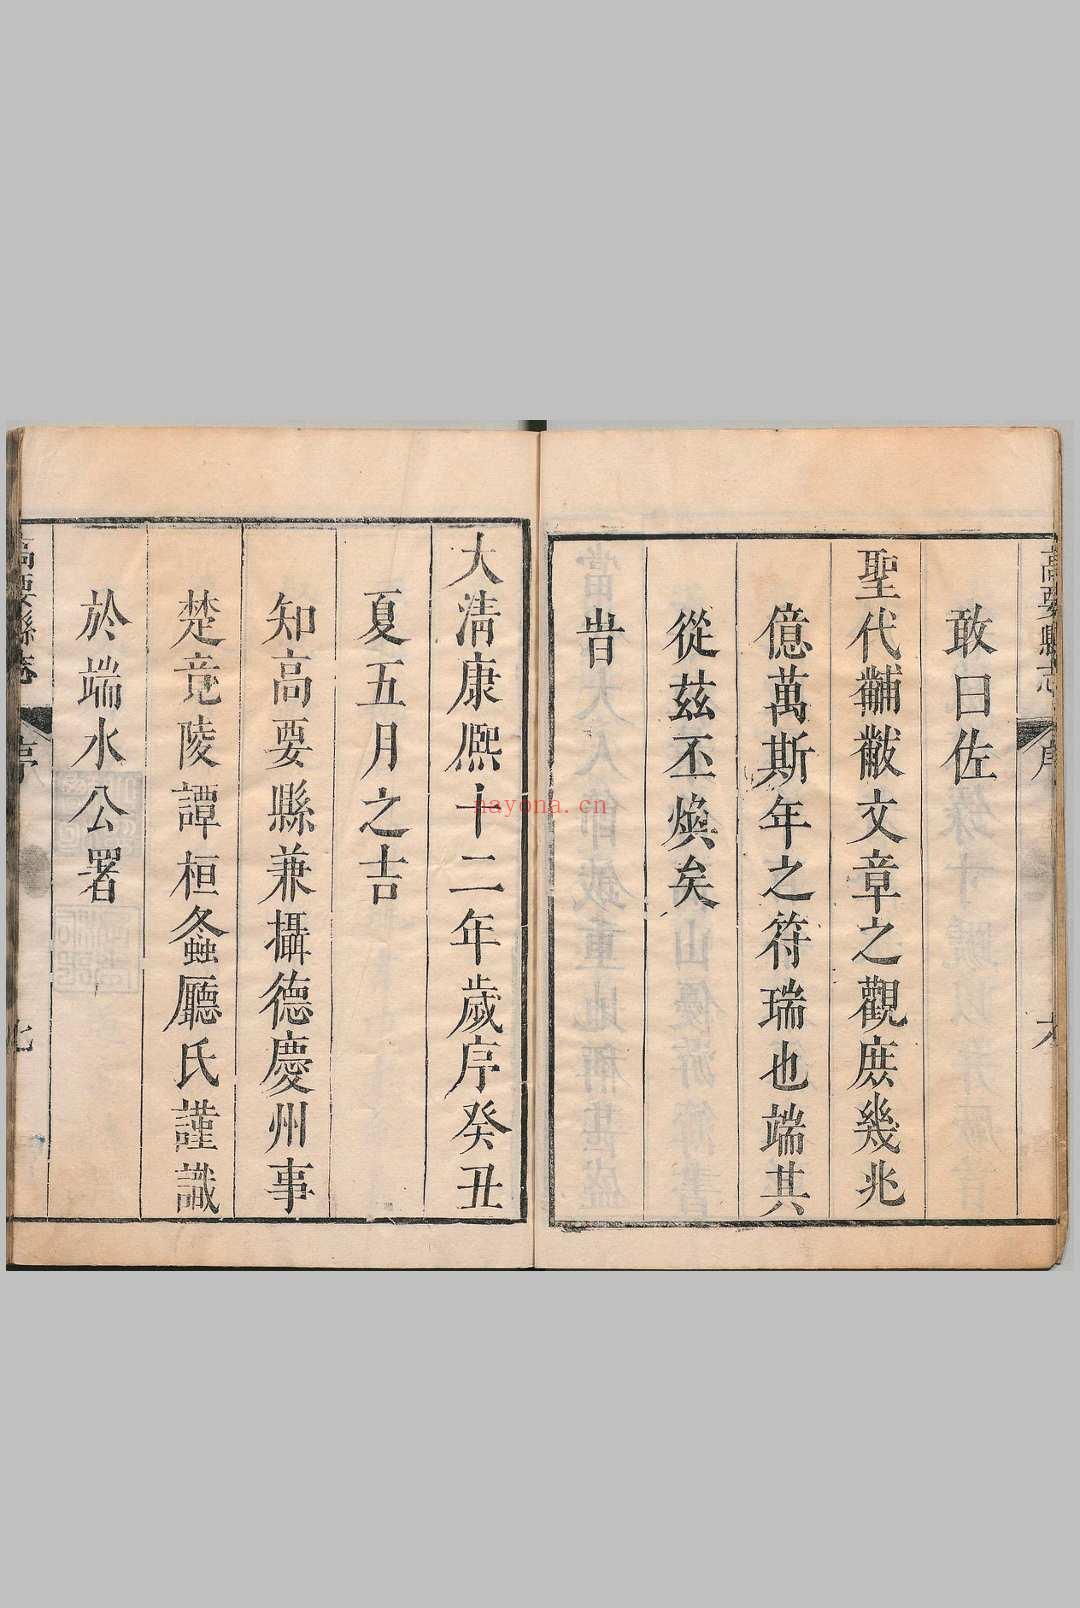 高要縣志
序
六
敢曰佐
聖代黼黻文章之觀庶幾兆
億萬斯年之符瑞也端其
從茲丕煥矣
旹
大清康熙十二年歲序癸丑
夏五月之吉
知高要縣兼攝德慶州事
楚竟陵譚桓螽廳氏謹識
於端水公署
序
七
nayona.cn